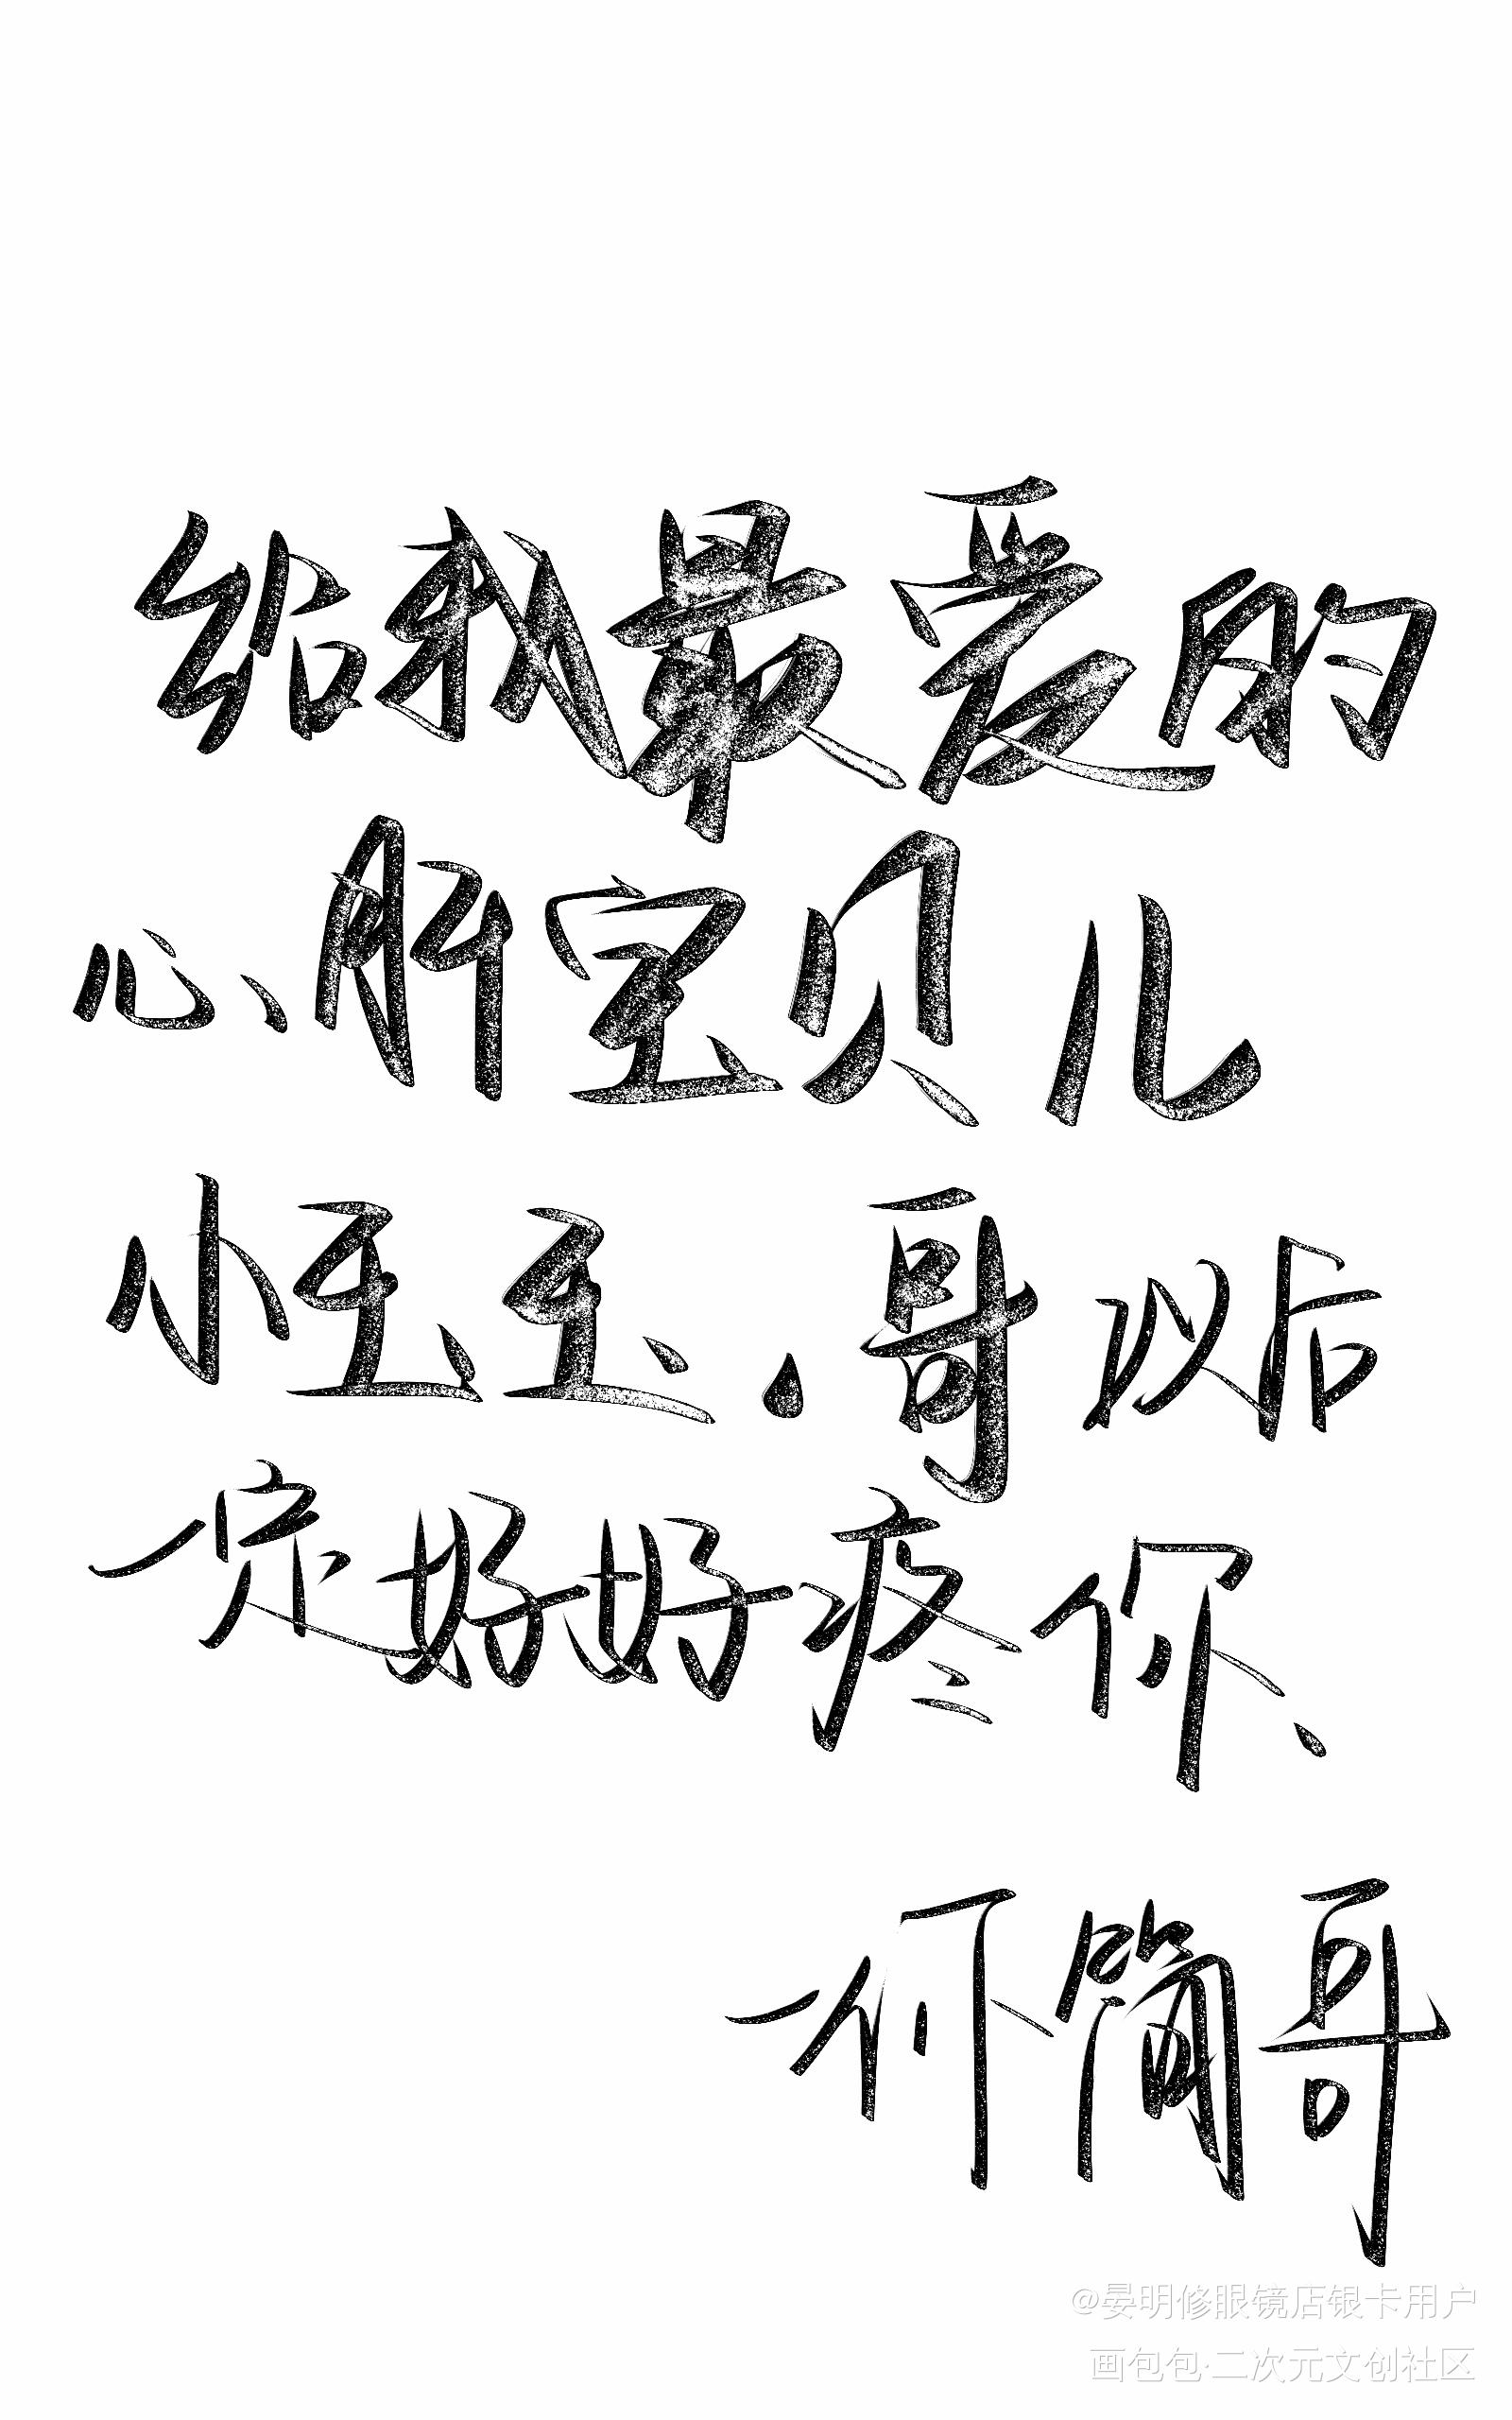 给我最爱的
心肝宝贝儿
小玉玉.哥以后
一定好好疼你、
一你简哥
@晏明修眼镜店银卡用户
画包包·二次元文创社区